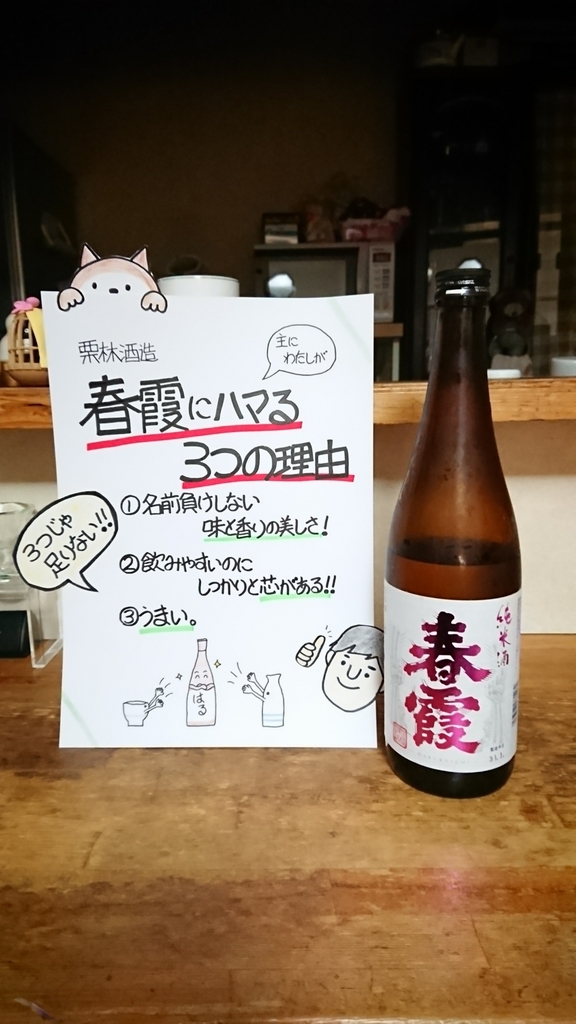 栗林酒造
主に
わたしが
春霞にハマる
3つの理由
①名前負けしない
味と香りの美しさ!
②飲みやすいのに
しっかりと芯がある!!
③うまい。
3つじゃ
足りない!!
はる
純米酒
春霞
31.1.